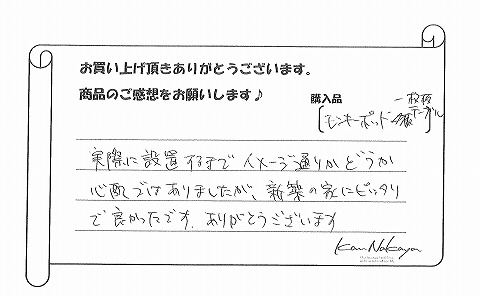 お買い上げ頂きありがとうございます。
商品のご感想をお願いします♪
購入品
一枚板
テーブル
モンキーポッド
実際に設置するまでイメージ通りかどうか
心配ではありましたが、新築の家にピッタリ
で良かったです。ありがとうございます
Kan Nakaya